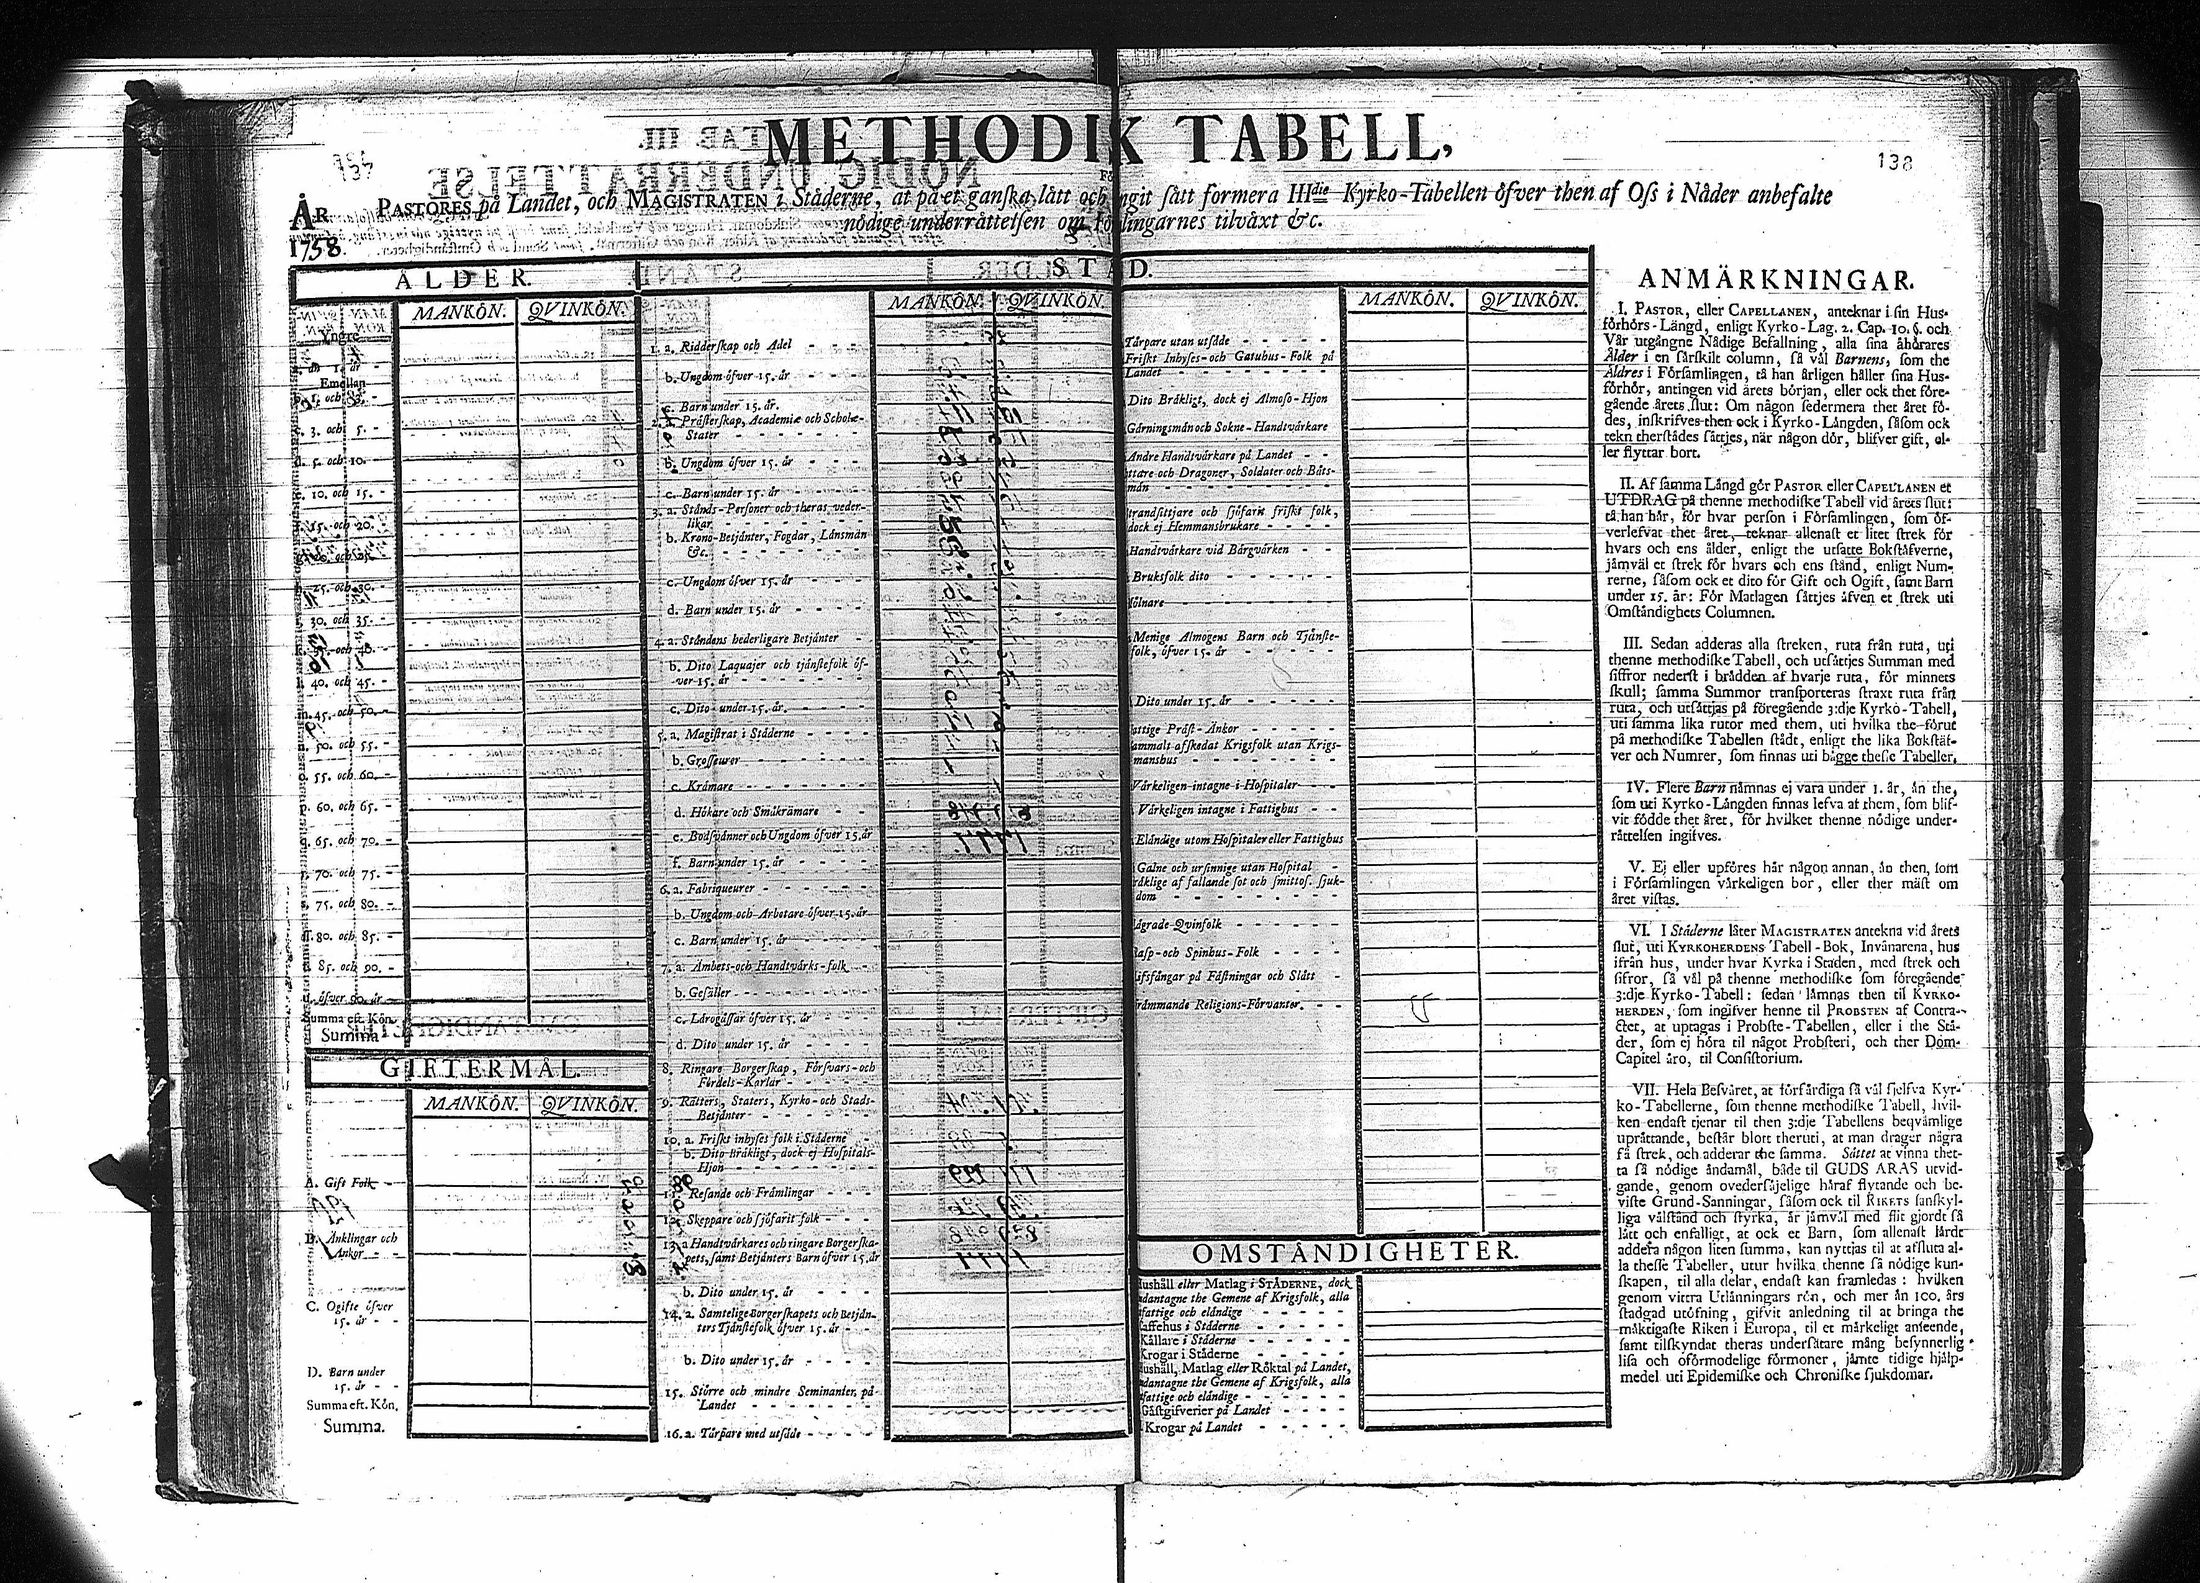 METHODIK TABELL,
137
138
PASTORES på Landet, och MAGISTRATEN i Städerne, at på et ganska lätt och ringit sätt formera IIIdie Kyrko-Tabellen öfver then af Oss i Nåder anbefalte
nödige underrättelsen om Församlingarnes tilväxt &c.
ÅR
1758.
ÅLDER.
MANKÖN. QVINKÖN.
Yngre
än 1. år
Emellan
1. och 3. -
c. 3. och 5. -
d. 5. och 10.
e. 10. och 15. -
15. och 20.
25. och 30.
30. och 35. -
40. och 45. -
m. 45. och 50. -
n. 50. och 55. -
o. 55. och 60.
p. 60. och 65.
q. 65. och 70. -
r. 70. och 75. -
75. och 80. -
80. och 85. -
85. och 90. -
öfver 90. år
Summa eft. Kön.
Summa
GIFTERMÅL.
MANKÖN. QVINKÖN.
A. Gift Folk
B. Änklingar och
Änkor - -
C. Ogifte öfver
15. år - -
D. Barn under
15. år - -
Summa eft. Kön.
Summa.
STÅD.
MANKÖN. QVINKÖN.
1. a. Ridderskap och Adel - - -
b. Ungdom öfver 15. år - - -
c. Barn under 15. år.
2. a. Prästerskap, Academiæ och Scholæ-
Stater - - - - - -
b. Ungdom öfver 15. år - - -
c. Barn under 15. år - - - - -
3. a. Stånds-Personer och theras veder-
likar
b. Krono-Betjänter, Fogdar, Länsmän
&c. - - - - - - -
c. Ungdom öfver 15. år - - - -
d. Barn under 15. år - - - - -
4. a. Ståndens hederligare Betjänter -
b. Dito Laquajer och tjänstefolk öf-
ver 15. år - - - - - -
c. Dito under 15. år. - - - -
5. a. Magistrat i Städerne - - - -
b. Grosseurer - - - - -
c. Krämare - - - - - -
d. Hökare och Småkrämare - -
e. Bodsvänner och Ungdom öfver 15. år
f. Barn under 15. år - - - - -
6. a. Fabriqueurer - - - - - -
b. Ungdom och Arbetare öfver 15. år
c. Barn under 15. år - - - -
7. a. Ämbets-och Handtvärks-folk - -
b. Gesäller - - - - - -
c. Lärogåssar öfver 15. år - - -
d. Dito under 15. år - - - -
8. Ringare Borgerskap, Försvars-och
Fördels-Karlar - - - -
9. Rätters, Staters, Kyrko-och Stads-
Betjänter - - - - - -
10. a. Friskt inhyses folk i Städerne -
b. Dito Bräkligt, dock ej Hospitals-
Hjon - - - - - -
11. Resande och Främlingar - - -
12. Skeppare och sjöfarit folk - - -
13. a. Handtvärkares och ringare Borgerska-
pets, samt Betjänters Barn öfver 15. år
b. Dito under 15. år - - - -
14. a. Samtelige Borgerskapets och Betjän-
ters Tjänstefolk öfver 15. år - -
b. Dito under 15. år - - - -
15. Större och mindre Seminanter på
Landet - - - - - - -
16. a. Tårpare med utsäde - - - -
MANKÖN. QVINKÖN.
Tårpare utan utsäde - - - -
Friskt Inhyses-och Gatuhus-Folk på
Landet - - - - - - -
Dito Bräkligt, dock ej Almoso-Hjon
Gärningsmän och Sokne-Handtvärkare
Andre Handtvärkare på Landet - -
ttare och Dragoner, Soldater och Båts-
män - - - - - - -
trandsittjare och sjöfarit friskt folk,
dock ej Hemmansbrukare - - - -
Handtvärkare vid Bärgvärken - -
Bruksfolk dito - - - - - -
ölnare - - - - - -
Menige Almogens Barn och Tjänste-
folk, öfver 15. år - - - - -
Dito under 15. år - - - - -
attige Präst-Änkor - - - - -
ammalt afskedat Krigsfolk utan Krigs-
manshus - - - - - - -
Värkeligen intagne i Hospitaler - -
Värkeligen intagne i Fattighus - -
Eländige utom Hospitaler eller Fattighus
Galne och ursinnige utan Hospital -
räklige af fallande sot och smittos. sjuk-
dom - - - - - - -
ägrade Qvinfolk - - - - - -
Rasp-och Spinhus-Folk - - - -
ifsfångar på Fästningar och Slått -
rämmande Religions-Förvanter. - -
OMSTÄNDIGHETER.
ushåll eller Matlag i STÄDERNE, dock
ndantagne the Gemene af Krigsfolk, alla
fattige och eländige - - - - -
affehus i Städerne - - - - -
Källare i Städerne - - - - -
Krogar i Städerne - - - - -
ushåll, Matlag eller Röktal på Landet,
ndantagne the Gemene af Krigsfolk, alla
fattige och eländige - - - - -
Gästgifverier på Landet - - - -
Krogar på Landet - - - - -
ANMÄRKNINGAR.
I. PASTOR, eller CAPELLANEN, anteknar i sin Hus-
förhörs-Längd, enligt Kyrko-Lag. 2. Cap. 10. §. och
Vår utgångne Nådige Befallning, alla sina åhörares
Ålder i en särskilt column, så väl Barnens, som the
Äldres i Församlingen, tå han årligen håller sina Hus-
förhör, antingen vid årets början, eller ock thet före-
gående årets slut: Om någon sedermera thet året fö-
des, inskrifves then ock i Kyrko-Längden, såsom ock
tekn therstädes sättjes, när någon dör, blifver gift, el-
ler flyttar bort.
II. Af samma Längd gör PASTOR eller CAPELLANEN et
UTDRAG på thenne methodiske Tabell vid årets slut:
tå han här, för hvar person i Församlingen, som öf-
verlefvat thet året, teknar allenast et litet strek för
hvars och ens ålder, enligt the utsatte Bokstäfverne,
jämväl et strek för hvars och ens stånd, enligt Num-
rerne, såsom ock et dito för Gift och Ogift, samt Barn
under 15. år: För Matlagen sättjes äfven et strek uti
Omständighets Columnen.
III. Sedan adderas alla streken, ruta från ruta, uti
thenne methodiske Tabell, och utsättjes Summan med
siffror nederst i brädden af hvarje ruta, för minnets
skull; samma Summor transporteras straxt ruta från
ruta, och utsättjas på föregående 3:dje Kyrko-Tabell,
uti samma lika rutor med them, uti hvilka the förut
på methodiske Tabellen stådt, enligt the lika Bokstäf-
ver och Numrer, som finnas uti bägge thesse Tabeller.
IV. Flere Barn nämnas ej vara under 1. år, än the,
som uti Kyrko-Längden finnas lefva at them, som blif-
vit födde thet året, för hvilket thenne nödige under-
rättelsen ingifves.
V. Ej eller upföres här någon annan, än then, som
i Församlingen värkeligen bor, eller ther mäst om
året vistas.
VI. I Städerne låter MAGISTRATEN antekna vid årets
slut, uti KYRKOHERDENS Tabell-Bok, Invånarena, hus
ifrån hus, under hvar Kyrka i Staden, med strek och
sifror, så väl på thenne methodiske som föregående
3:dje Kyrko-Tabell: sedan lämnas then til KYRKO-
HERDEN, som ingifver henne til PROBSTEN af Contra-
ctet, at uptagas i Probste-Tabellen, eller i the Stä-
der, som ej höra til något Probsteri, och ther Dom-
Capitel äro, til Consistorium.
VII. Hela Besväret, at förfärdiga så väl sjelfva Kyr-
ko-Tabellerne, som thenne methodiske Tabell, hvil-
ken endast tjenar til then 3:dje Tabellens beqvämlige
uprättande, består blott theruti, at man drager några
få strek, och adderar the samma. Sättet at vinna thet-
ta så nödige ändamål, både til GUDS ÄRAS utvid-
gande, genom ovedersäjelige häraf flytande och be-
viste Grund-Sanningar, såsom ock til RIKETS sanskyl-
liga välstånd och styrka, är jämväl med flit gjordt så
lätt och enfalligt, at ock et Barn, som allenast lärdt
addera någon liten summa, kan nyttjas til at afsluta al-
la thesse Tabeller, utur hvilka thenne så nödige kun-
skapen, til alla delar, endast kan framledas: hvilken
genom vittra Utlänningars rön, och mer än 100. års
stadgad utöfning, gifvit anledning til at bringa the
mäktigaste Riken i Europa, til et märkeligt anseende,
samt tilskyndat theras undersåtare mång besynnerlig
lisa och oförmodelige förmoner, jämte tidige hjälp-
medel uti Epidemiske och Chroniske sjukdomar.